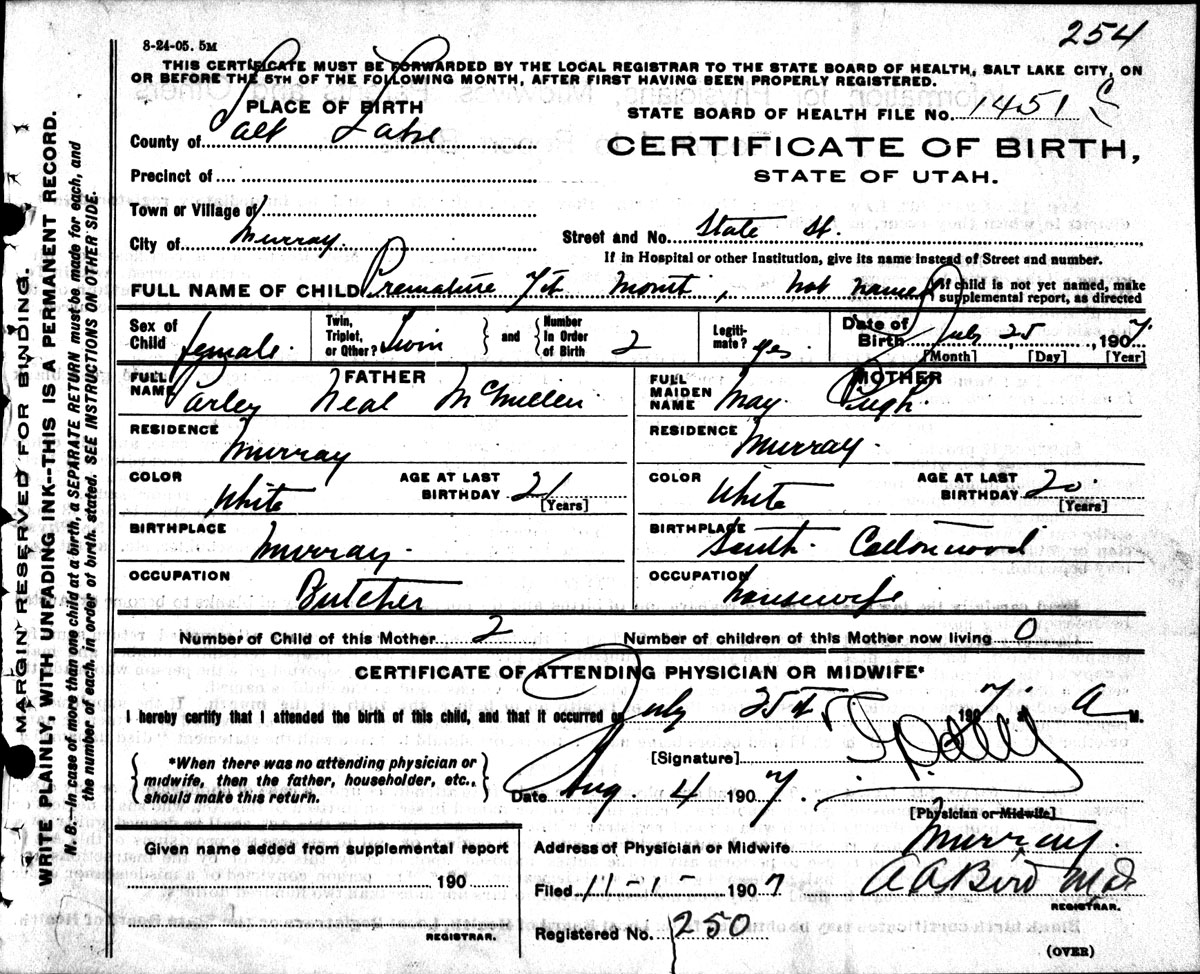 254
8-24-05. 5M
THIS CERTIFICATE MUST BE FORWARDED BY THE LOCAL REGISTRAR TO THE STATE BOARD OF HEALTH, SALT LAKE CITY, ON
OR BEFORE THE 5TH OF THE FOLLOWING MONTH, AFTER FIRST HAVING BEEN PROPERLY REGISTERED.
PLACE OF BIRTH
STATE BOARD OF HEALTH FILE No. 1451 C
County of Salt Lake
CERTIFICATE OF BIRTH,
STATE OF UTAH.
Precinct of
Town or Village of
City of Murray.
Street and No. State St.
If in Hospital or other Institution, give its name instead of Street and number.
FULL NAME OF CHILD Premature 7th month, not named
If child is not yet named, make
supplemental report, as directed
Sex of Child female. Twin, Triplet, or Other? Twin and Number In Order of Birth 2 Legiti-mate? Yes Date of Birth July 25, 1907.
[Month] [Day] [Year]
FATHER MOTHER
FULL NAME Parley Neal McMillen FULL MAIDEN NAME May Pugh.
RESIDENCE Murray RESIDENCE Murray.
COLOR White AGE AT LAST BIRTHDAY 21 [Years] COLOR White AGE AT LAST BIRTHDAY 20. [Years]
BIRTHPLACE Murray. BIRTHPLACE South. Cottonwood
OCCUPATION Butcher OCCUPATION housewife
Number of Child of this Mother 2 Number of children of this Mother now living 0
CERTIFICATE OF ATTENDING PHYSICIAN OR MIDWIFE*
I hereby certify that I attended the birth of this child, and that it occurred on July 25th 1907. at A M.
*When there was no attending physician or
midwife, then the father, householder, etc.,
should make this return.
[Signature]
Date Aug. 4 1907.
[Physician or Midwife]
Given name added from supplemental report
190
REGISTRAR.
Address of Physician or Midwife Murray.
Filed 11-1- 1907 A A Bird MD
REGISTRAR.
Registered No. 250
(OVER)
MARGIN RESERVED FOR BINDING.
WRITE PLAINLY, WITH UNFADING INK--THIS IS A PERMANENT RECORD.
N. B.--In case of more than one child at a birth, a SEPARATE RETURN must be made for each, and
the number of each, in order of birth, stated. SEE INSTRUCTIONS ON OTHER SIDE.